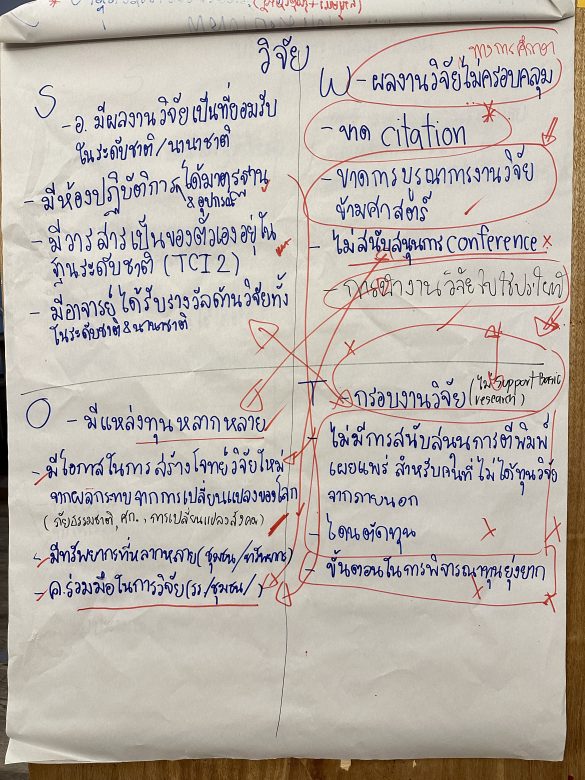 วิจัย
S
- อ. มีผลงานวิจัยเป็นที่ยอมรับ
ในระดับชาติ/นานาชาติ
- มีห้องปฏิบัติการได้มาตรฐาน
& อุปกรณ์
- มีวารสารเป็นของตัวเองอยู่ใน
ฐานระดับชาติ (TCI 2)
- มีอาจารย์ได้รับรางวัลด้านวิจัยทั้ง
ในระดับชาติ & นานาชาติ
W
ทางการศึกษา
- ผลงานวิจัยไม่ครอบคลุม
- ขาด citation
- ขาดการบูรณาการงานวิจัย
ข้ามศาสตร์
- ไม่สนับสนุนการ conference
- การนำงานวิจัยไปใช้ประโยชน์
O
- มีแหล่งทุนหลากหลาย
- มีโอกาสในการสร้างโจทย์วิจัยใหม่
จากผลกระทบจากการเปลี่ยนแปลงของโลก
(ภัยธรรมชาติ, ศก., การเปลี่ยนแปลงสังคม)
- มีทรัพยากรที่หลากหลาย (ชุมชน/
- ค.ร่วมมือในการวิจัย (รร/ชุมชน/ )
T
- กรอบงานวิจัย (ไม่ support basic
research)
- ไม่มีการสนับสนุนการตีพิมพ์
เผยแพร่ สำหรับคนที่ไม่ได้ทุนวิจัย
จากภายนอก
- โดนตัดทุน
- ขั้นตอนในการพิจารณาทุนยุ่งยาก